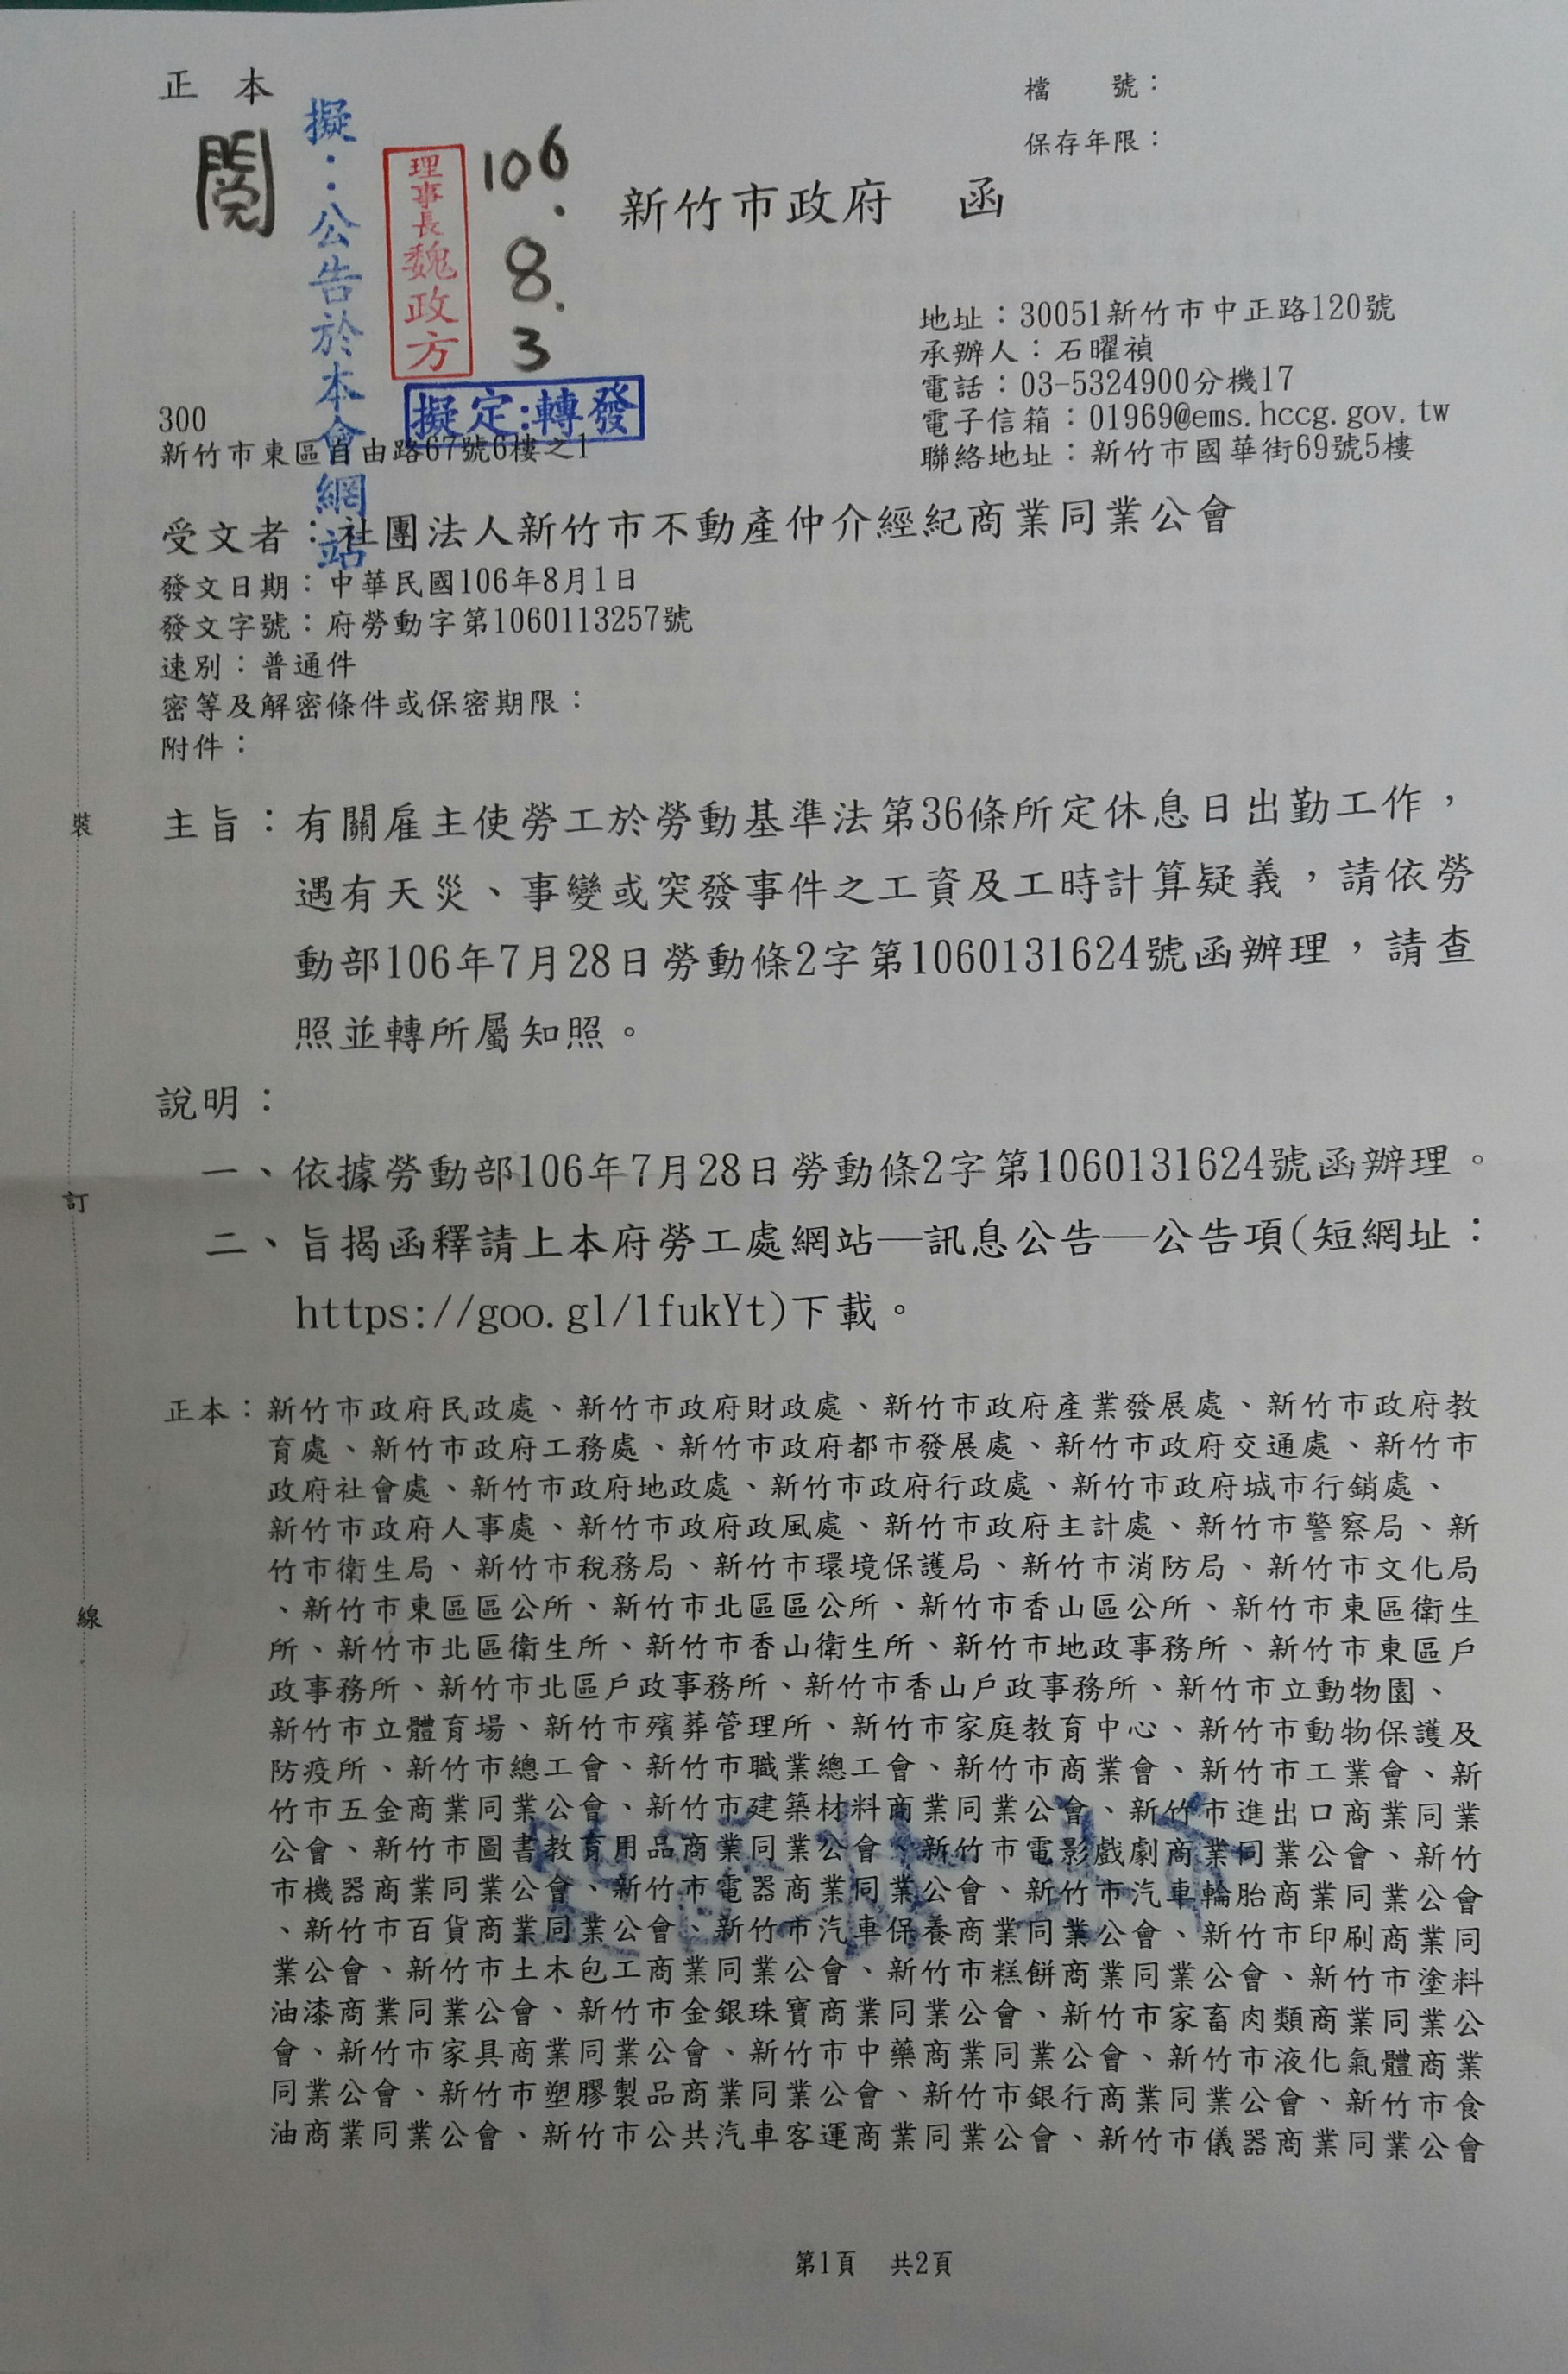 正本
檔　　號：
保存年限：
閱
擬：公告於本會網站
理事長魏政方
106.8.3
擬定:轉發
新竹市政府　函
地址：30051新竹市中正路120號
承辦人：石曜禎
電話：03-5324900分機17
電子信箱：01969@ems.hccg.gov.tw
聯絡地址：新竹市國華街69號5樓
300
新竹市東區自由路67號6樓之1
受文者：社團法人新竹市不動產仲介經紀商業同業公會
發文日期：中華民國106年8月1日
發文字號：府勞動字第1060113257號
速別：普通件
密等及解密條件或保密期限：
附件：
主旨：有關雇主使勞工於勞動基準法第36條所定休息日出勤工作，
遇有天災、事變或突發事件之工資及工時計算疑義，請依勞
動部106年7月28日勞動條2字第1060131624號函辦理，請查
照並轉所屬知照。
說明：
一、依據勞動部106年7月28日勞動條2字第1060131624號函辦理。
二、旨揭函釋請上本府勞工處網站—訊息公告—公告項(短網址：
https://goo.gl/1fukYt)下載。
正本：新竹市政府民政處、新竹市政府財政處、新竹市政府產業發展處、新竹市政府教
育處、新竹市政府工務處、新竹市政府都市發展處、新竹市政府交通處、新竹市
政府社會處、新竹市政府地政處、新竹市政府行政處、新竹市政府城市行銷處、
新竹市政府人事處、新竹市政府政風處、新竹市政府主計處、新竹市警察局、新
竹市衛生局、新竹市稅務局、新竹市環境保護局、新竹市消防局、新竹市文化局
、新竹市東區區公所、新竹市北區區公所、新竹市香山區公所、新竹市東區衛生
所、新竹市北區衛生所、新竹市香山衛生所、新竹市地政事務所、新竹市東區戶
政事務所、新竹市北區戶政事務所、新竹市香山戶政事務所、新竹市立動物園、
新竹市立體育場、新竹市殯葬管理所、新竹市家庭教育中心、新竹市動物保護及
防疫所、新竹市總工會、新竹市職業總工會、新竹市商業會、新竹市工業會、新
竹市五金商業同業公會、新竹市建築材料商業同業公會、新竹市進出口商業同業
公會、新竹市圖書教育用品商業同業公會、新竹市電影戲劇商業同業公會、新竹
市機器商業同業公會、新竹市電器商業同業公會、新竹市汽車輪胎商業同業公會
、新竹市百貨商業同業公會、新竹市汽車保養商業同業公會、新竹市印刷商業同
業公會、新竹市土木包工商業同業公會、新竹市糕餅商業同業公會、新竹市塗料
油漆商業同業公會、新竹市金銀珠寶商業同業公會、新竹市家畜肉類商業同業公
會、新竹市家具商業同業公會、新竹市中藥商業同業公會、新竹市液化氣體商業
同業公會、新竹市塑膠製品商業同業公會、新竹市銀行商業同業公會、新竹市食
油商業同業公會、新竹市公共汽車客運商業同業公會、新竹市儀器商業同業公會
裝
訂
線
第1頁　共2頁